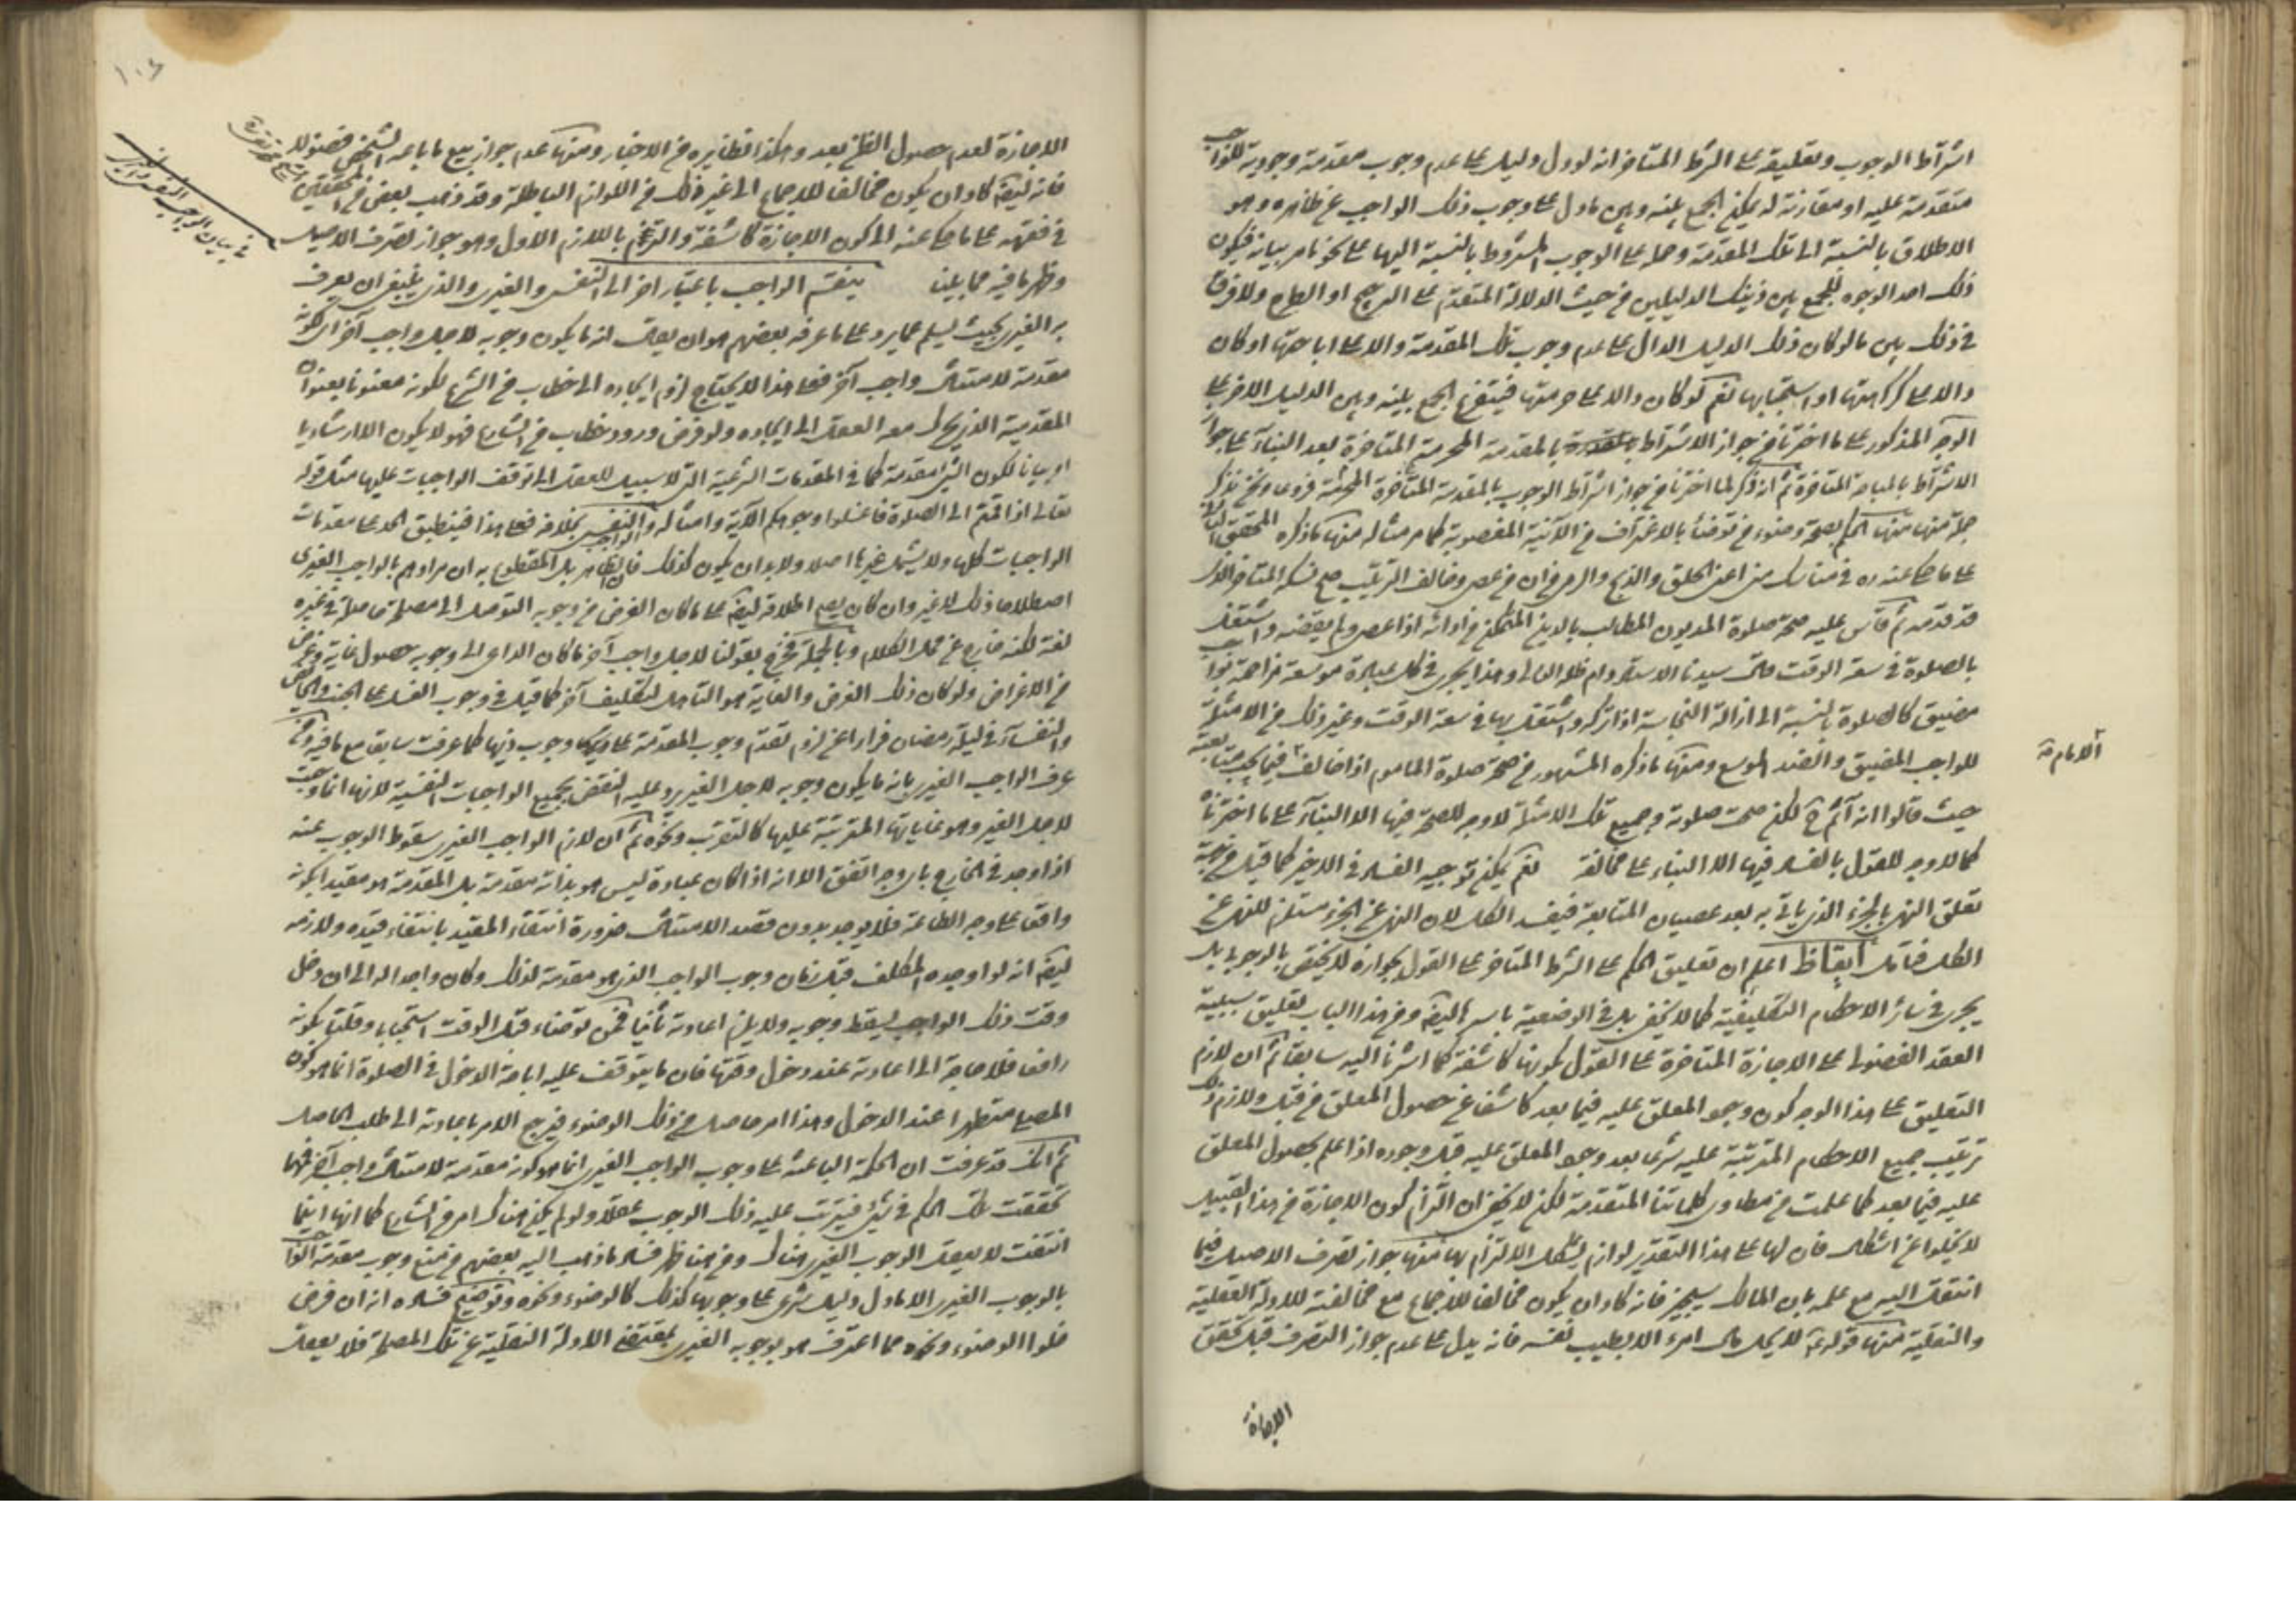 اشتراط الوجوب وتعليقه على الشرط المتاخر انه لو دل دليل على عدم وجوب مقدمة وجودية للواجب
متقدمة عليه او مقارنة له يمكن الجمع بينه وبين ما دل على وجوب ذلك الواجب عن ظاهره وهو
الاطلاق بالنسبة الى تلك المقدمة وحمله على الوجوب المشروط بالنسبة اليها على نحو ما مر بيانه فيكون
ذلك احد الوجوه للجمع بين ذينك الدليلين من حيث الدلالة المتقدم على الترجيح او الطرح ولا فرق
في ذلك بين ما لو كان ذلك الدليل الدال على عدم وجوب تلك المقدمة دالا على اباحتها او كان
دالا على كراهتها او استحبابها نعم لو كان دالا على حرمتها فيتفرع الجمع بينه وبين الدليل الاخر على
الوجه المذكور على ما اخترنا من جواز الاشتراط بالمقدمة المحرمة المتاخرة بعد البناء على جواز
الاشتراط بالمباحة المتاخرة ثم انه ذكر لما اخترنا من جواز اشتراط الوجوب بالمقدمة المتاخرة المحرمة فروعا ونحن نذكر
جملة منها منها الحكم بصحة وضوء من توضأ بالاغتراف من الآنية المغصوبة كما مر مثاله ومنها ما ذكره المحقق الثاني
على ما حكى عنه ره في مناسك منى اعنى الحلق والذبح والرمى فان من عصى وخالف الترتيب صح نسكه المتاخر الذى
قد قدمه ثم قاس عليه صحة صلوة المديون المطالب بالدين المتمكن من ادائه اذا عصى ولم يقضه واشتغل
بالصلوة في سعة الوقت قال سيدنا الاستاد دام ظله العالى وهذا يجرى في كل عبادة موسعة مزاحمة لواجب
مضيق كالصلوة بالنسبة الى ازالة النجاسة اذا تركه واشتغل بها في سعة الوقت وغير ذلك من الامثلة
للواجب المضيق والضد الموسع ومنها ما ذكره المشهور من صحة صلوة الماموم اذا خالف فيما يجب متابعته
الامام فيه
حيث قالوا انه آثم ح لكن صحت صلوته وجميع تلك الامثلة لا وجه للصحة فيها الا البناء على ما اخترناه
كما لا وجه للقول بالفساد فيها الا البناء على مخالفة نعم يمكن توجيه الفساد في الاخير كما قيل من جهة
تعلق النهى بالجزء الذى ياتى به بعد عصيان المتابعة فيفسد الكل لان النهى عن الجزء مستلزم للنهى عن
الكل فتامل ايقاظ اعلم ان تعليق الحكم على الشرط المتاخر على القول بجوازه لا يختص بالوجوب بل
يجرى في سائر الاحكام التكليفية كما لا يخفى بل في الوضعية باسرها ايضا ومن هذا الباب تعليق سببية
العقد الفضولى على الاجازة المتاخرة على القول بكونها كاشفة كما اشرنا اليه سابقا ثم ان لازم
التعليق على هذا الوجه كون وجود المعلق عليه فيما بعد كاشفا عن حصول المعلق من قبل ولازم ذلك
ترتيب جميع الاحكام المترتبة عليه شرعا بعد وجود المعلق عليه قبل وجوده اذا علم بحصول المعلق
عليه فيما بعد كما علمت من مطاوى كلماتنا المتقدمة لكن لا يخفى ان التزام كون الاجازة من هذا القبيل
لا يخلوا عن اشكال فان لها على هذا التقدير لوازم يشكل الالتزام بها منها جواز تصرف الاصيل فيما
انتقل اليه مع علمه بان المالك سيجيز فانه كاد ان يكون مخالفا للاجماع مع مخالفته للادلة العقلية
والنقلية منها قوله ع لا يحل مال امرء الا بطيب نفسه فانه يدل على عدم جواز التصرف قبل تحقق
الاجازة
١٠٤
الاجازة لعدم حصول الطيب بعد وهكذا نظائره من الاخبار ومنها عدم جواز بيع ما باعه الشخص فضولا
فانه ايضا كاد ان يكون مخالفا للاجماع الى غير ذلك من اللوازم الباطلة وقد ذهب بعض من المحققين
في فقهه على ما حكى عنه الى كون الاجازة كاشفة والتزم باللازم الاول وهو جواز تصرف الاصيل
في بيان الواجب النفسى والغيرى
وظهر ما فيه مما بينا ينقسم الواجب باعتبار اخر الى النفسى والغيرى والذى ينبغى ان يعرف
به الغيرى بحيث يسلم عما يرد على ما عرفه بعضهم هو ان يقال انه ما يكون وجوبه لاجل واجب آخر اى لكونه
مقدمة لامتثال واجب آخر فعلى هذا لا يحتاج لزوم ايجاده الى خطاب من الشرع لكونه معنونا بعنوان
المقدمية الذى يحرك معه العقل الى ايجاده ولو فرض ورود خطاب من الشارع فهو لا يكون الا ارشاديا
او بيانا لكون الشئ مقدمة كما في المقدمات الشرعية التى لا سبيل للعقل الى توقف الواجبات عليها مثل قوله
تعالى اذا قمتم الى الصلوة فاغسلوا وجوهكم الآية وامثاله والنفسى بخلافه فعلى هذا فينطبق الحد على مقدمات
الواجبات كلها ولا يشمل غيرها اصلا ولا بد ان يكون كذلك فان الظاهر بل المقطوع به ان مرادهم بالواجب الغيرى
اصطلاحا ذلك لا غير وان كان يصح اطلاقه ايضا على ما كان الغرض من وجوبه التوصل الى مصلحة حاصلة في غيره
لغة لكنه خارج عن محل الكلام وبالجملة فخرج بقولنا لاجل واجب آخر ما كان الداعى الى وجوبه حصول غاية وغرض
من الاغراض ولو كان ذلك الغرض والغاية هو التاهل لتكليف آخر كما قيل في وجوب الغسل على الجنب والحائض
والنفساء في ليلة رمضان فرارا عن لزوم تقدم وجوب المقدمة على وجوب ذيها كما عرفت سابقا مع ما فيه
عرف الواجب الغيرى بانه ما يكون وجوبه لاجل الغير ورد عليه النقض بجميع الواجبات النفسية لانها انما وجبت
لاجل الغير وهو غاياتها المترتبة عليها كالتقرب ونحوه ثم ان لازم الواجب الغيرى سقوط الوجوب عنه
اذا وجد في الخارج باى وجه اتفق الا انه اذا كان عبادة ليس هو بذاته مقدمة بل المقدمة هو مقيدا بكونه
واقعا على وجه الطاعة فلا يوجد بدون قصد الامتثال ضرورة انتفاء المقيد بانتفاء قيده ولازمه
ايضا انه لو اوجده المكلف قبل زمان وجوب الواجب الذى هو مقدمة لذلك وكان واجدا له الى ان دخل
وقت ذلك الواجب يسقط وجوبه ولا يلزم اعادته ثانيا فمن توضأ قبل الوقت استحبابا وقلنا بكونه
رافعا فلا حاجة الى اعادته عند دخول وقتها فان ما يتوقف عليه اباحة الدخول في الصلوة انما هو كون
المصلى متطهرا عند الدخول وهذا امر حاصل من ذلك الوضوء فيرجع الامر باعادته الى طلب الحاصل
ثم انك قد عرفت ان الحكمة الباعثة على وجوب الواجب الغيرى انما هو كونه مقدمة لامتثال واجب آخر فمهما
تحققت تلك الحكم في شئ فيترتب عليه ذلك الوجوب عقلا ولو لم يكن هناك امر من الشارع كما انها اينما
انتفت لا يعقل الوجوب الغيرى هناك ومن هنا ظهر فساد ما ذهب اليه بعضهم من منع وجوب مقدمة الواجب
بالوجوب الغيرى الا ما دل دليل شرعى على وجوبها كذلك كالوضوء ونحوه وتوضيح فساده انه ان فرض
خلوا الوضوء ونحوه مما اعترف هو بوجوبه الغيرى بمقتضى الادلة النقلية عن تلك المصلحة فلا يعقل